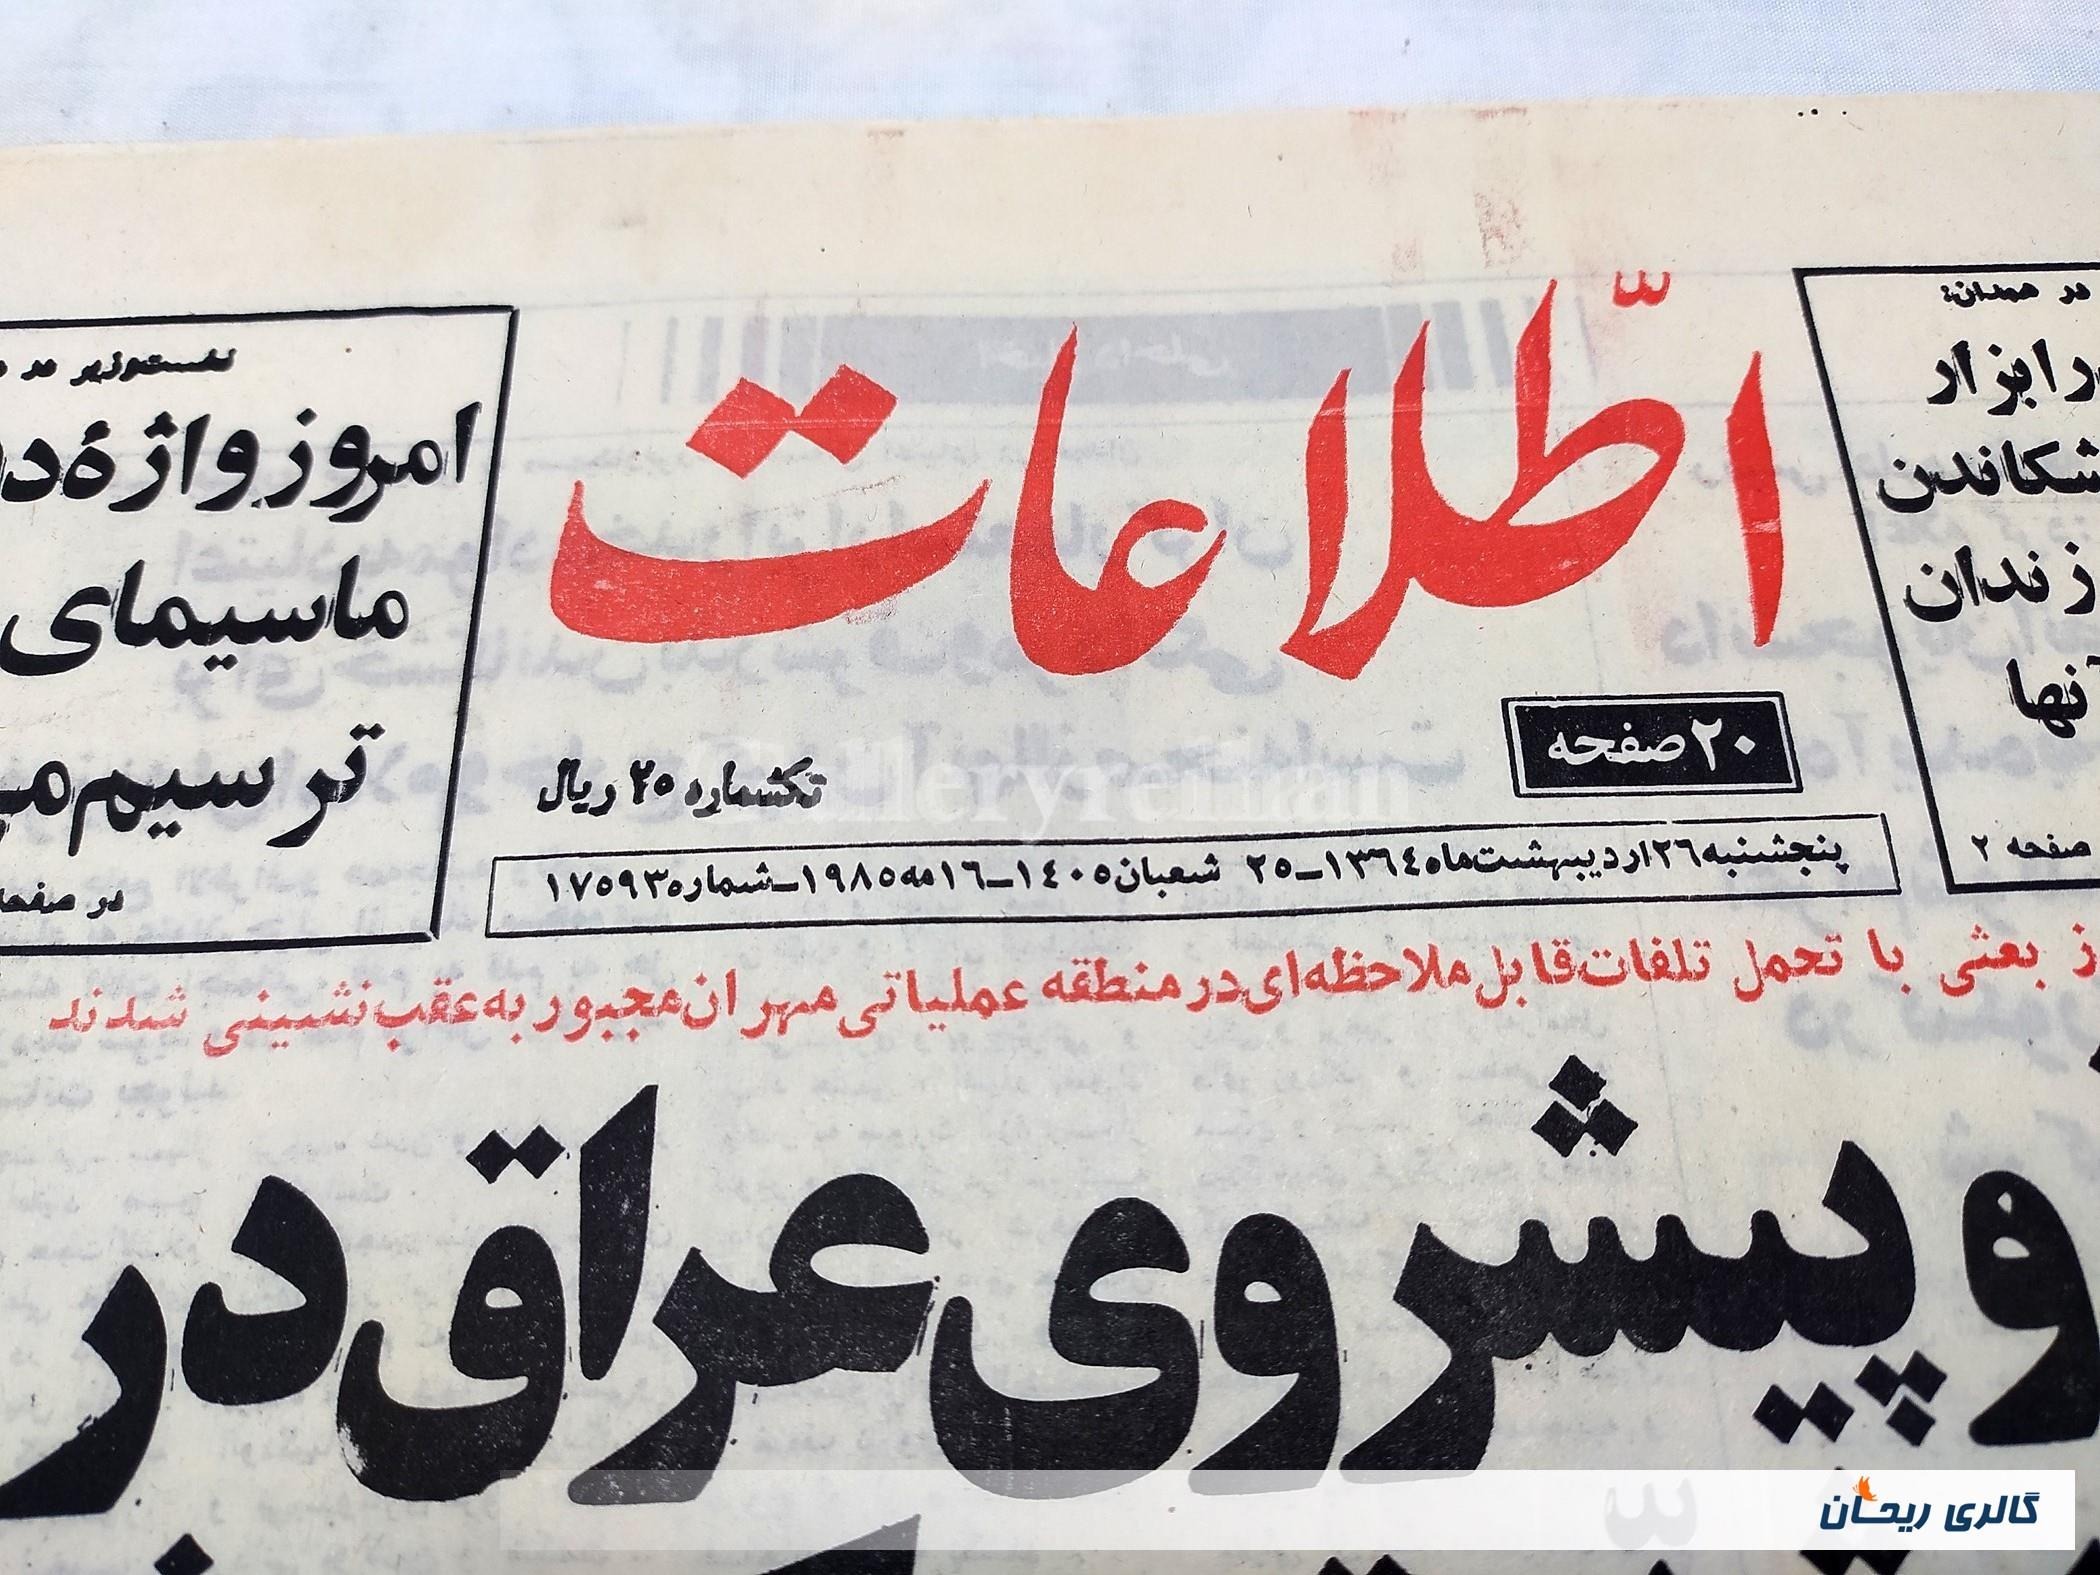 در همدان:
ابزار
شکاندن
زندان
آنها
صفحه ۲
اطّلاعات
۲۰ صفحه
تکشماره ۲۵ ریال
پنجشنبه ۲۶ اردیبهشت ماه ۱۳۶۴ـ ۲۵ شعبان ۱۴۰۵ـ ۱۶ مه ۱۹۸۵ـ شماره ۱۷۵۹۳
نخست وزیر در
امروز واژهٔ
ماسیمای
ترسیم
در
بعثی با تحمل تلفات قابل ملاحظه ای در منطقه عملیاتی مهران مجبور به عقب نشینی شدند
و پیشروی عراق در
Galleryreihan
گالری ریحان